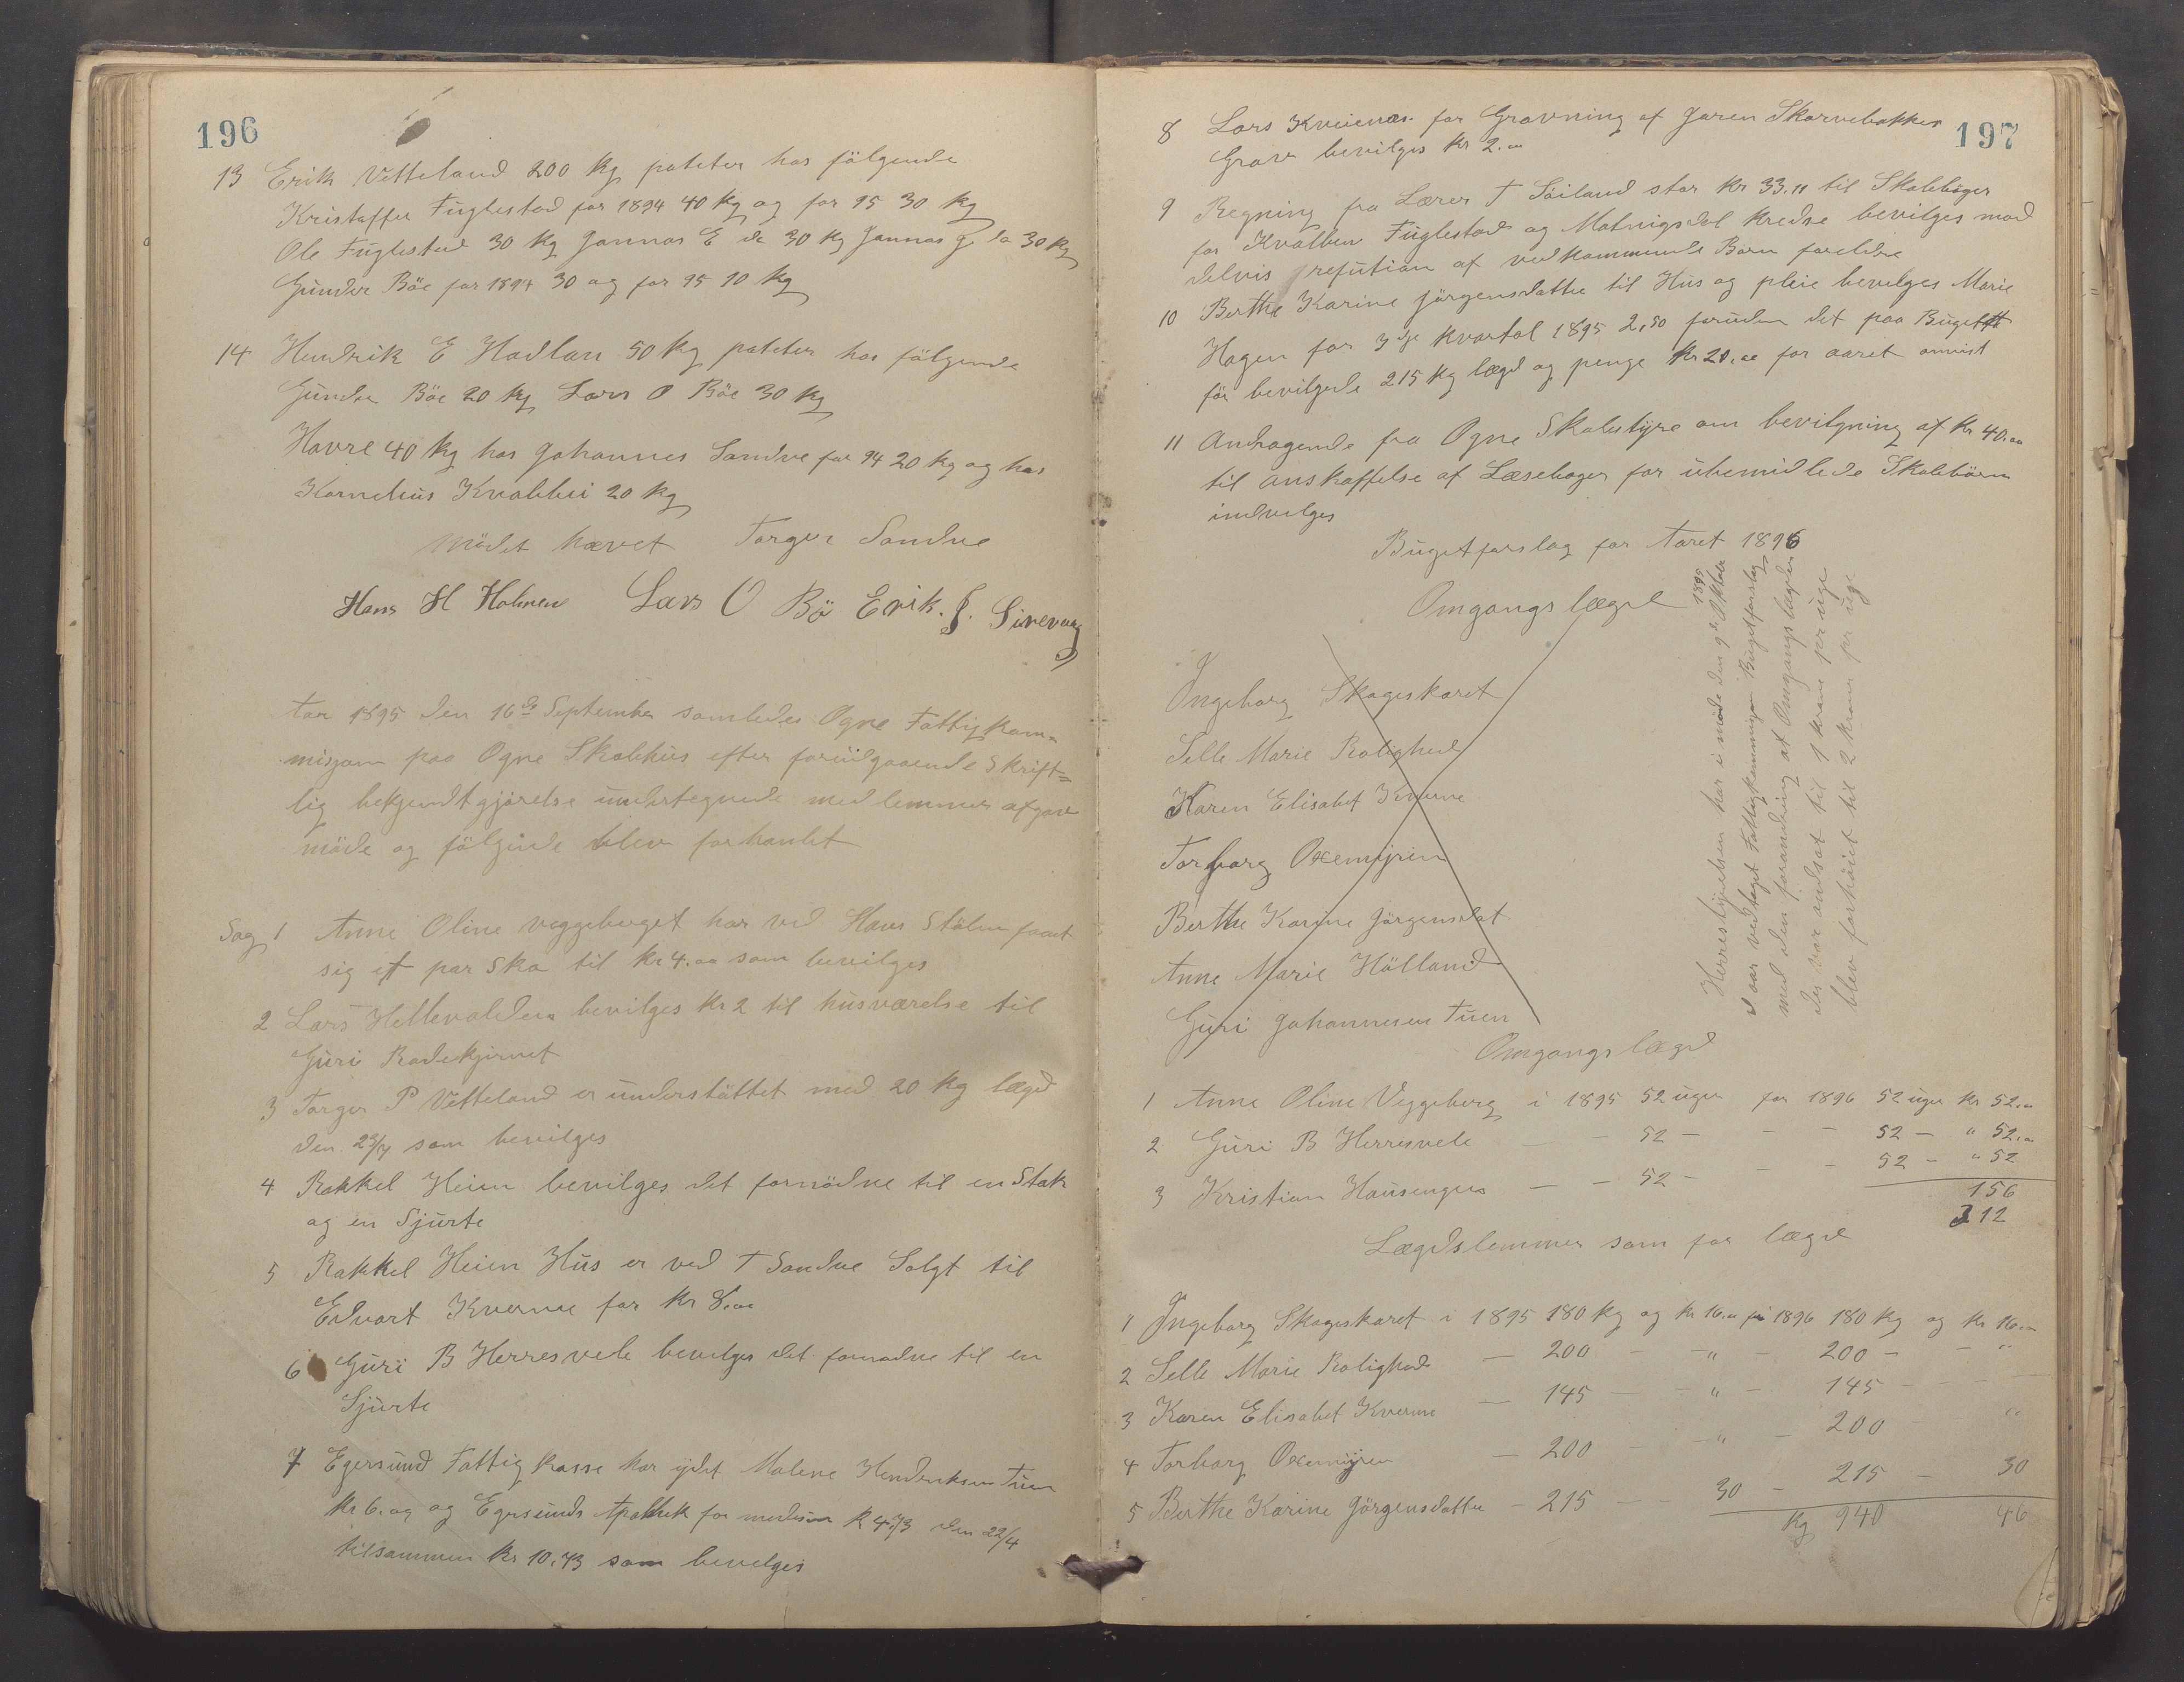 196
13 Erik Vetteland 200 Kg poteter hos følgende
Kristoffer Fuglestad for 1894 40 Kg og for 95 30 Kg
Ole Fuglestad 30 Kg Jonnas E do 30 Kg Jonnas J do 30 Kg
Gunder Böe for 1894 30 og for 95 10 Kg
14 Hendrik E Hadlan 50 Kg poteter hos fölgende
Gunder Böe 20 Kg Lars O Böe 30 Kg
Havre 40 Kg hos Johannes Sandve for 94 20 Kg og hos
Kornelius Kvalbei 20 Kg
Mödet hævet Torger Sandve
Hans H Holmen Lars O Bö Erik. J. Sirevaag
Aar 1895 den 16de September samledes Ogne Fattigkom-
misjom paa Ogne Skolehus efter forudgaaende Skrift=
lig bekjendtgjörelse undertegnede medlemmer afgav
möde og fölgende blev forhanlet
Sag 1 Anne Oline veggeberget har ved Hans Stölen faaet
sig et par Sko til Kr 4.00 som bevilges
2 Lars Hellevolden bevilges Kr 2 til husværelse til
Guri Radekjirnet
3 Torger P Vetteland er understöttet med 20 Kg lægd
den 23/7 som bevilges
4 Rakkel Heien bevilges det fornödne til en Stak
og en Sjurte
5 Rakkel Heien Hus er ved T Sandve Solgt til
Edvart Kverne for Kr 8.00
6 Guri B Herresvele bevilges det fornødne til en
Sjurte
7 Egersund Fattigkasse har ydet Malene Hendriksen Tuen
Kr 6.00 og Egersunds Apothek for medisin K 4.73 den 22/4
tilsammen Kr 10.73 som bevelges
197
8 Lars Kveienæs for Gravning af Joren Skarvebakkes
Grav bevilges Kr 2.00
9 Regning fra Lærer T Söiland stor Kr 33.11 til Skolebøger
for Kvalbein Fuglestad og Matnigsdal Kredse bevilges mod
delvis refution af vedkommende Børn foreldre
10 Berthe Karine Jörgensdatter til Hus og pleie bevelges Marie
Hagen for 3dje Kvartal 1895 2,50 foruden det paa Bugett
för bevilgede 215 Kg lægd og penge Kr 20.00 for aaret anvist
11 Andragende fra Ogne Skolestyre om bevilgning af Kr 40.00
til anskaffelse af Læsebøger for ubemidlede Skolebörn
indvelges
Bugetforslag for Aaret 1896
Omgangs lægd
Ingeborg Skogeskaret
Selle Marie Rolighed
Karen Elisabet Kverne
Torborg Oxemyren
Berthe Karine Jörgensdat
Anne Marie Hölland
Guri Johannesen Tuen
Herrestyrelsen har i möde den 9de Oktober 1895
d aar vedtaget Fattigkommisjon Bugetforslag
med den forandring at Omgangslægden
der var ansat til 1 krone pr uge
blev forhöiet til 2 Kroner pr uge
Omgangs lægd
1 Anne Oline Veggeberg i 1895 52 uger for 1896 52 uger Kr 52.00
2 Guri B Herresvele — - 52 — - - 52 — " 52.00
3 Kristian Hausengen — - 52 - - - 52 - " 52
156
312
Lægdslemmer som for lægd
1 Ingeborg Skogeskaret i 1895 180 Kg og Kr 16.00 for 1896 180 Kg og Kr 16.00
2 Selle Marie Rolighed — 200 - - " - 200 - - "
3 Karen Elisabet Kverne — 145 - - " - 145 - - -
4 Torborg Oxemyren — 200 - - " - 200 "
5 Berthe Karine Jörgensdatter - 215 - - 30 - 215 - 30
Kg 940 46